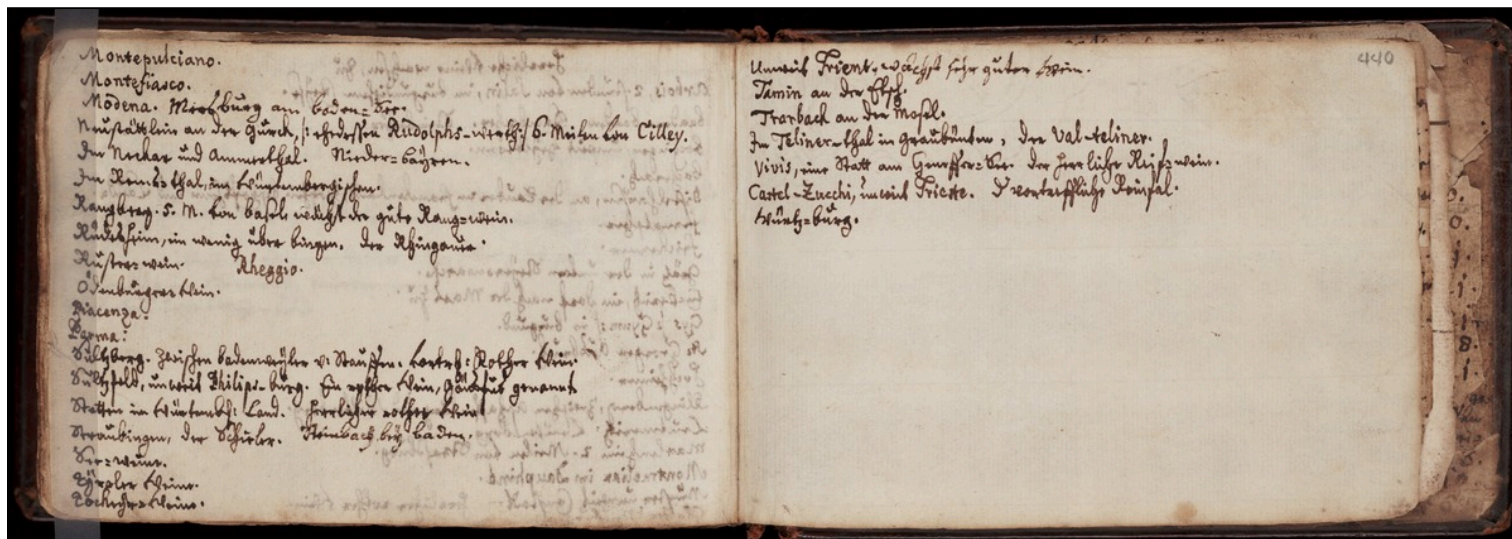 Montepulciano.
Montefiasco.
Módena. Mörsburg am boden=See.
Neustättlein an der Gurck, /: ehedessen Rudolphs-werth :/ 6. Meilen von Cilley.
Im Neckar und Ammerthal. Nieder=bayren.
Im Rems=thal, im Würtembergischen.
Rangberg. 5. M. von basel wächst der gute Rang=wein.
Rüdesheim, ein wenig über bingen. der Rhingauer.
Ruster=wein. Rheggio.
Ödenburger Wein.
Piacenza.
Parma.
Sultzberg. Zwischen badenweyler v. Stauffen. Rother Wein.
Sultzfeld, unweit Philips-burg. Ein rother Wein, genannt
Stetten im Würtemb: Land. herrlicher rother Wein
Straubingen, der Schieler. Steinbach bey baden.
See=weine.
Tyroler Weine.
Tockayer=Weine.
440
Unweit Trient, wächst sehr guter Wein.
Tamin an der Etsch.
Trarbach an der Mosel.
Im Teliner-thal in Graubünten, der Val-teliner.
Vivis, eine Statt am Genffer=See. der herrliche Reiff=wein.
Castel-Zucchi, unweit Trieste. vortreffliche Reinfal.
Würtz=burg.